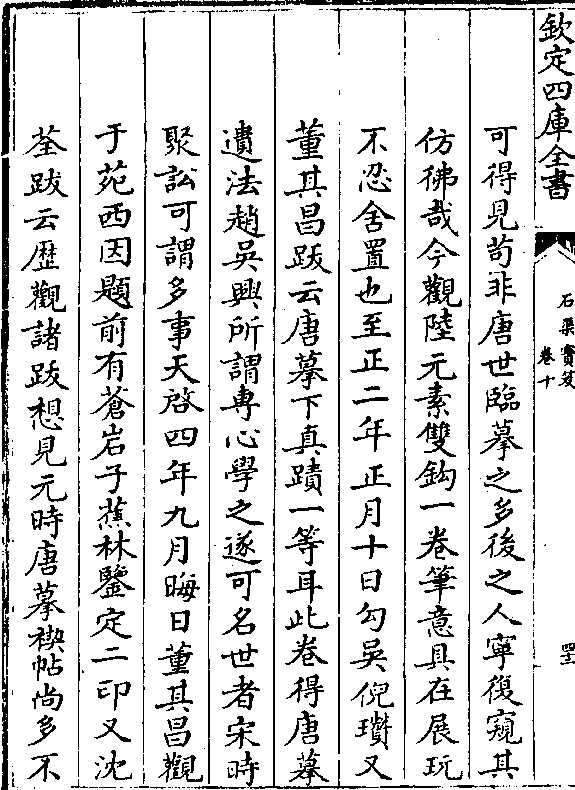 欽定四庫全書
石渠寶笈
卷十
可得見苟非唐世臨摹之多後之人寧復窺其
仿彿哉今觀陸元素雙鈎一卷筆意具在展玩
不忍舍置也至正二年正月十日勾吳倪瓚又
董其昌跋云唐摹下真蹟一等耳此卷得唐摹
遺法趙吳興所謂專心學之遂可名世者宋時
聚訟可謂多事天啓四年九月晦日董其昌觀
于苑西因題前有蒼岩子蕉林鑒定二印又沈
荃跋云歷觀諸跋想見元時唐摹禊帖尚多不